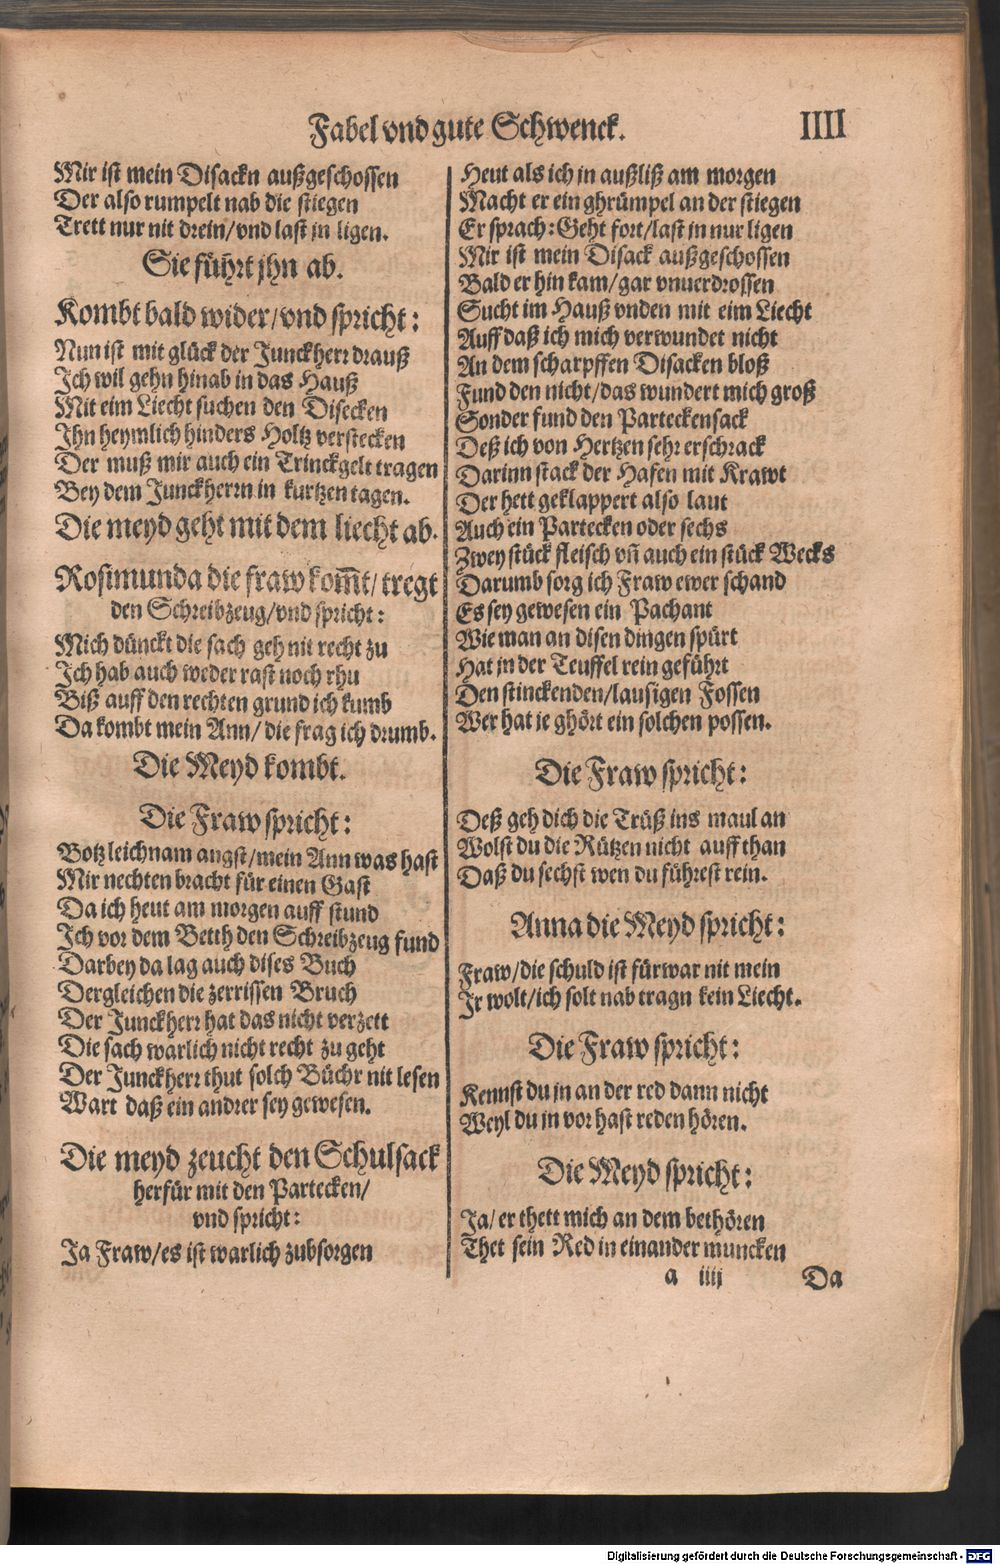 Fabel vnd gute Schwenck.
IIII
Mir ist mein Disackn außgeschossen
Der also rumpelt nab die stiegen
Trett nur nit drein/vnd last jn ligen.
Sie führt jhn ab.
Kombt bald wider/vnd spricht:
Nun ist mit glück der Junckherr drauß
Ich wil gehn hinab in das Hauß
Mit eim Liecht suchen den Disecken
Ihn heymlich hinders Holtz verstecken
Der muß mir auch ein Trinckgelt tragen
Bey dem Junckherrn in kurtzen tagen.
Die meyd geht mit dem liecht ab.
Rosimunda die fraw kom̃t/tregt
den Schreibzeug/vnd spricht:
Mich dünckt die sach geh nit recht zu
Ich hab auch weder rast noch rhu
Biß auff den rechten grund ich kumb
Da kombt mein Ann/ die frag ich drumb.
Die Meyd kombt.
Die Fraw spricht:
Botz leichnam angst/mein Ann was hast
Mir nechten bracht für einen Gast
Da ich heut am morgen auff stund
Ich vor dem Betth den Schreibzeug fund
Darbey da lag auch dises Buch
Dergleichen die zerrissen Bruch
Der Junckherr hat das nicht verzett
Die sach warlich nicht recht zu geht
Der Junckherr thut solch Büchr nit lesen
Wart daß ein andrer sey gewesen.
Die meyd zeucht den Schulsack
herfür mit den Partecken/
vnd spricht:
Ja Fraw/es ist warlich zubsorgen
Heut als ich jn außliß am morgen
Macht er ein ghrümpel an der stiegen
Er sprach: Geht fort/last jn nur ligen
Mir ist mein Disack außgeschossen
Bald er hin kam/gar vnuerdrossen
Sucht im Hauß vnden mit eim Liecht
Auff daß ich mich verwundet nicht
An dem scharpffen Disacken bloß
Fund den nicht/das wundert mich groß
Sonder fund den Parteckensack
Deß ich von Hertzen sehr erschrack
Darinn stack der Hafen mit Krawt
Der hett geklappert also laut
Auch ein Partecken oder sechs
Zwey stück fleisch vñ auch ein stück Wecks
Darumb sorg ich Fraw ewer schand
Es sey gewesen ein Pachant
Wie man an disen dingen spürt
Hat jn der Teuffel rein geführt
Den stinckenden/lausigen Fossen
Wer hat je ghört ein solchen possen.
Die Fraw spricht:
Deß geh dich die Trüß ins maul an
Wolst du die Rützen nicht auff than
Daß du sechst wen du führest rein.
Anna die Meyd spricht:
Fraw/die schuld ist fürwar nit mein
Jr wolt/ich solt nab tragn kein Liecht.
Die Fraw spricht:
Kennst du jn an der red dann nicht
Weyl du jn vor hast reden hören.
Die Meyd spricht:
Ja/ er thett mich an dem bethören
Thet sein Red in einander muncken
a iiij
Da
Digitalisierung gefördert durch die Deutsche Forschungsgemeinschaft - DFG